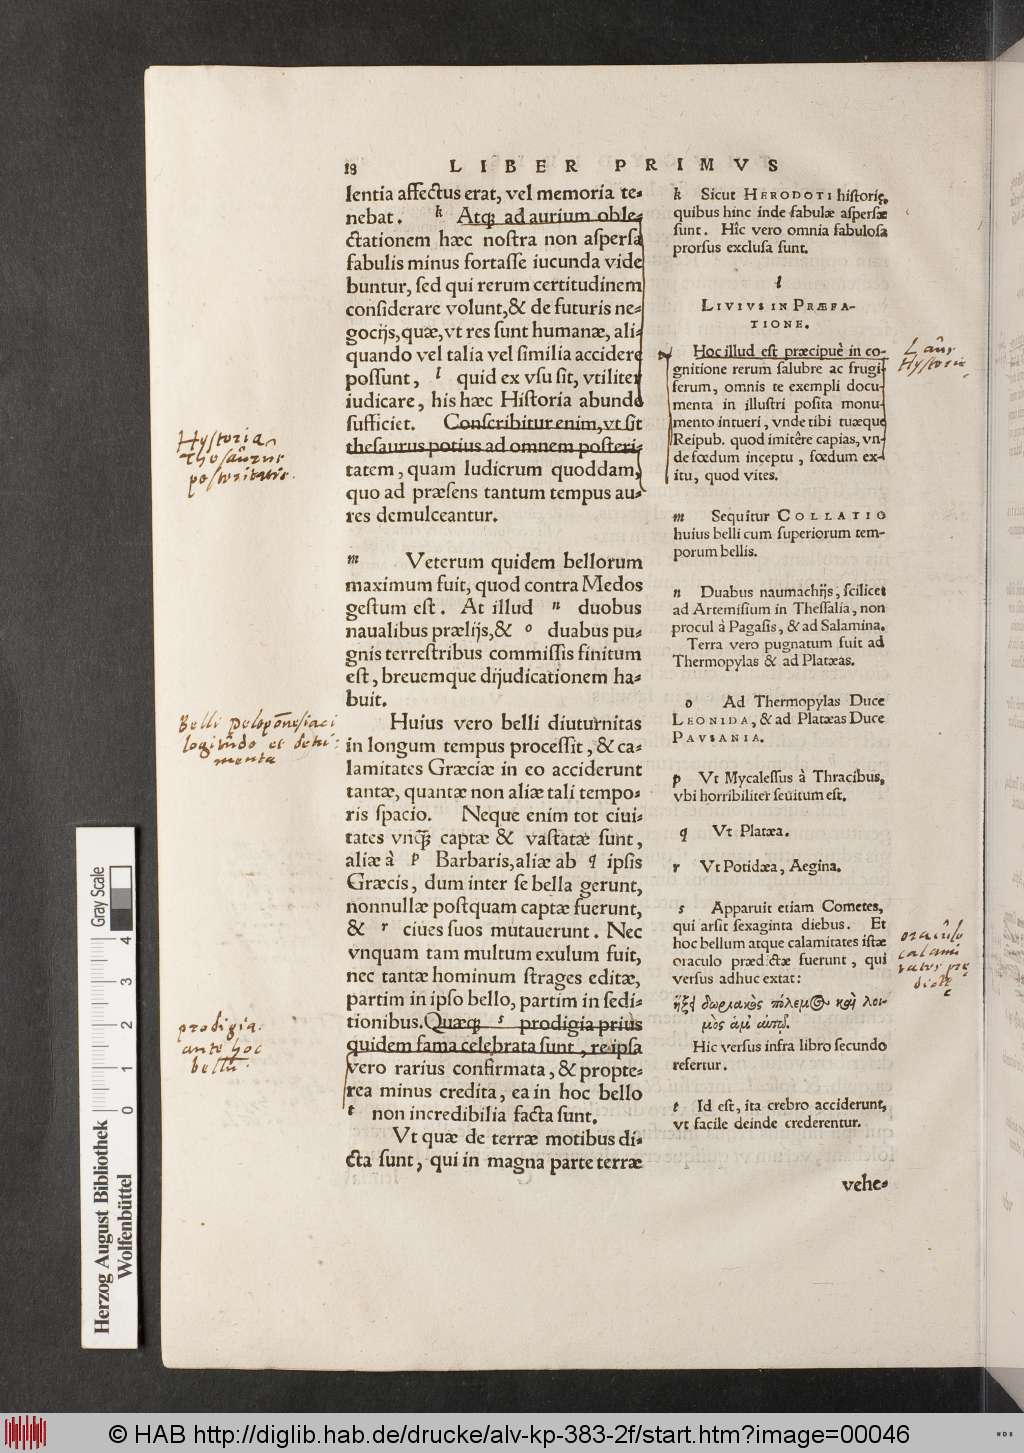 18 LIBER PRIMVS
lentia affectus erat, vel memoria te-
nebat. k Atq; ad aurium oble-
ctationem hæc nostra non aspersa
fabulis minus fortasse iucunda vide
buntur, sed qui rerum certitudinem
considerare volunt, & de futuris ne-
gocijs, quæ, vt res sunt humanæ, ali-
quando vel talia vel similia accidere
possunt, l quid ex vsu sit, vtiliter
iudicare, his hæc Historia abunde
sufficiet. Conscribitur enim, vt sit
thesaurus potius ad omnem posteri-
tatem, quam ludicrum quoddam,
quo ad præsens tantum tempus au-
res demulceantur.
m Veterum quidem bellorum
maximum fuit, quod contra Medos
gestum est. At illud n duobus
naualibus prælijs, & o duabus pu-
gnis terrestribus commissis finitum
est, breuemque dijudicationem ha-
buit.
Huius vero belli diuturnitas
in longum tempus processit, & ca-
lamitates Græciæ in eo acciderunt
tantæ, quantæ non aliæ tali tempo-
ris spacio. Neque enim tot ciui-
tates vnq̃ captæ & vastatæ sunt,
aliæ à p Barbaris, aliæ ab q ipsis
Græcis, dum inter se bella gerunt,
nonnullæ postquam captæ fuerunt,
& r ciues suos mutauerunt. Nec
vnquam tam multum exulum fuit,
nec tantæ hominum strages editæ,
partim in ipso bello, partim in sedi-
tionibus. Quæq; s prodigia prius
quidem fama celebrata sunt, re ipsa
vero rarius confirmata, & propte-
rea minus credita, ea in hoc bello
t non incredibilia facta sunt.
Vt quæ de terræ motibus di-
cta sunt, qui in magna parte terræ
vehe-
k Sicut HERODOTI historię,
quibus hinc inde fabulæ aspersæ
sunt. Hîc vero omnia fabulosa
prorsus exclusa sunt.
l
LIVIVS IN PRÆFA-
TIONE.
Hoc illud est præcipuè in co-
gnitione rerum salubre ac frugi-
ferum, omnis te exempli docu-
menta in illustri posita monu-
mento intueri, vnde tibi tuæque
Reipub. quod imitêre capias, vn-
de fœdum inceptu, fœdum ex-
itu, quod vites.
m Sequitur COLLATIO
huius belli cum superiorum tem-
porum bellis.
n Duabus naumachijs, scilicet
ad Artemisium in Thessalia, non
procul à Pagasis, & ad Salamina.
Terra vero pugnatum fuit ad
Thermopylas & ad Platæas.
o Ad Thermopylas Duce
LEONIDA, & ad Platæas Duce
PAVSANIA.
p Vt Mycalessus à Thracibus,
vbi horribiliter sęuitum est.
q Vt Platæa.
r Vt Potidæa, Aegina.
s Apparuit etiam Cometes,
qui arsit sexaginta diebus. Et
hoc bellum atque calamitates istæ
oraculo prædictæ fuerunt, qui
versus adhuc extat:
ἥξει δωριακὸς πόλεμος καὶ λοι-
μὸς ἅμ' αὐτῷ.
Hic versus infra libro secundo
refertur.
t Id est, ita crebro acciderunt,
vt facile deinde crederentur.
Hystoria
Thesaurus
posteritatis.
Belli peloponesiaci
logitudo et detri-
menta
prodigia
ante hoc
bellũ.
Laus
Hystorie
oraculo
calami
tates prę
dictę
Gray Scale
0 1 2 3 4
Herzog August Bibliothek
Wolfenbüttel
© HAB http://diglib.hab.de/drucke/alv-kp-383-2f/start.htm?image=00046